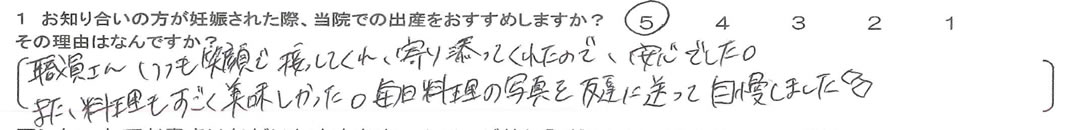 1 お知り合いの方が妊娠された際、当院での出産をおすすめしますか? 5 4 3 2 1
その理由はなんですか?
職員さん いつも笑顔で接してくれ、寄り添ってくれたので、安心でした。
また、料理もすごく美味しかった。毎日料理の写真を友達に送って自慢しました